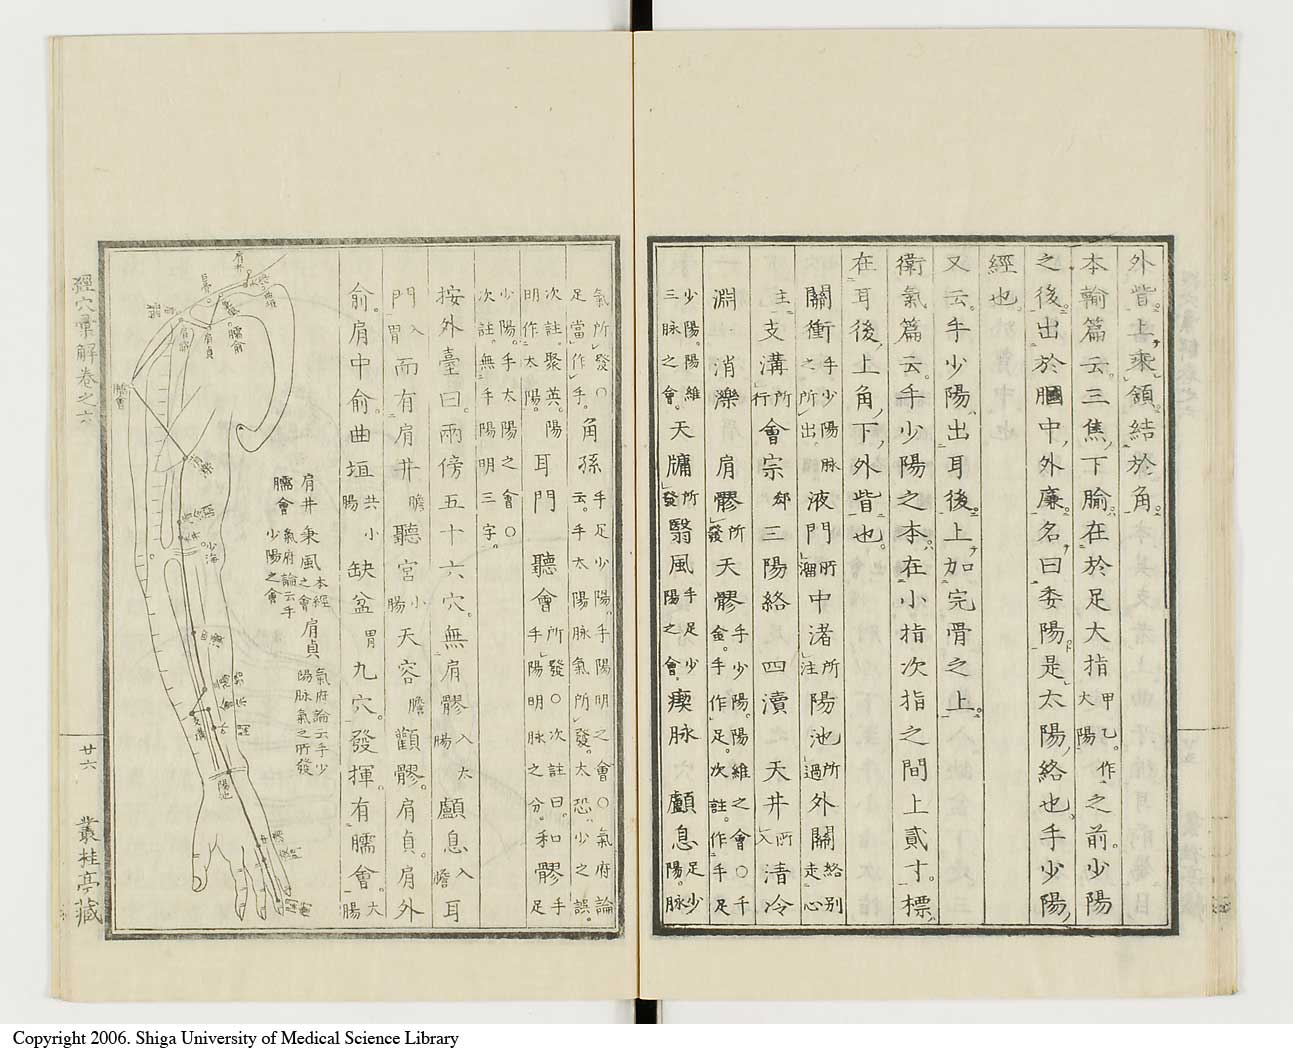 外眥上乘頷結於角
本輸篇云三焦下腧在於足大指甲乙作大陽之前少陽
之後出於膕中外廉名曰委陽是太陽絡也手少陽
經也
又云手少陽出耳後上加完骨之上
衛氣篇云手少陽之本在小指次指之間上貳寸標
在耳後上角下外眥也
關衝手少陽脉之所出液門所溜中渚所注陽池所過外關絡別走心
主支溝所行會宗郄三陽絡四瀆天井所入清冷
淵消濼肩髎所發天髎手少陽陽維之會○千金手作足次註作手足
少陽陽維三脉之會天牖所發翳風手足少陽之會瘈脉顱息足少陽脉
氣所發○足當作手角孫手足少陽手陽明之會○氣府論云手太陽脉氣所發太恐少之誤
次註聚英陽明作太陽耳門聽會手陽明脉所發○次註曰和髎手足
少陽手太陽之會○次註無手陽明三字
按外臺曰兩傍五十六穴無肩髎入大腸顱息入膽耳
門入胃而有肩井膽聽宮小腸天容膽顴髎肩貞肩外
俞肩中俞曲垣共小腸缺盆胃九穴發揮有臑會大腸
肩井秉風本經之會肩貞氣府論云手少陽脉氣之所發
臑會氣府論云手少陽之會
肩井
臑俞
肩貞
臑會
少海
陽池
經穴彙解卷之六
廿六
叢桂亭藏
Copyright 2006. Shiga University of Medical Science Library